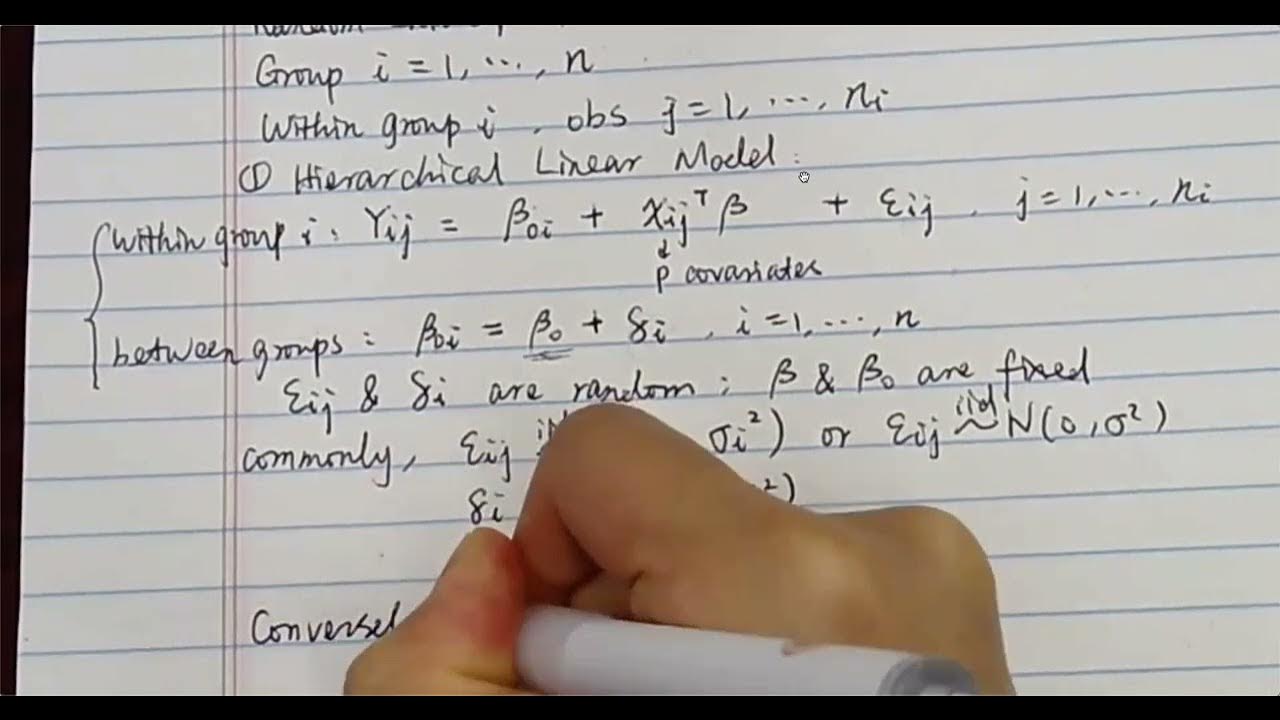 Group i = 1, ..., n
Within group i, obs j = 1, ..., nᵢ
① Hierarchical Linear Model:
Within group i: Yᵢⱼ = β₀ᵢ + Xᵢⱼᵀ β + εᵢⱼ, j = 1, ..., nᵢ
p covariates
between groups: β₀ᵢ = β₀ + δᵢ, i = 1, ..., n
εᵢⱼ & δᵢ are random; β & β₀ are fixed
commonly, εᵢⱼ σᵢ²) or εᵢⱼ iid ~ N(0, σ²)
δᵢ ²)